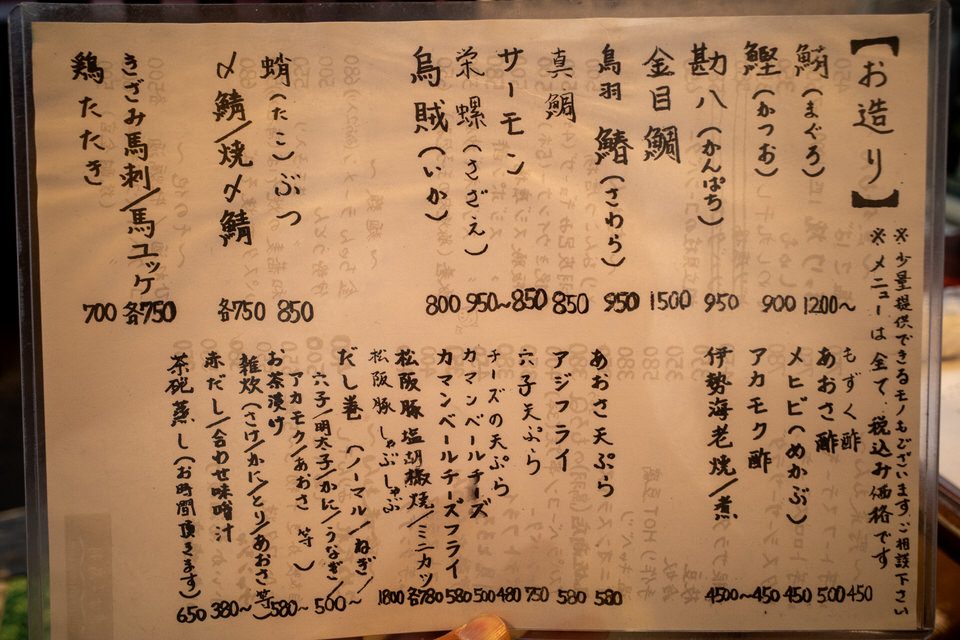 【お造り】
※少量提供できるモノもございます。ご相談下さい
※メニューは全て、税込み価格です
鮪(まぐろ) 1200～
鰹(かつお) 900
勘八(かんぱち) 950
金目鯛 1500
鳥羽 鰆(さわら) 950
真鯛 850
サーモン 850
栄螺(さざえ) 950～
烏賊(いか) 800
蛸(たこ)ぶつ 850
〆鯖/焼〆鯖 各750
きざみ馬刺/馬ユッケ 各750
鶏たたき 700
もずく酢 450
あおさ酢 500
メヒビ(めかぶ) 450
アカモク酢 450
伊勢海老焼/煮 4500～
あおさ天ぷら 580
アジフライ 580
穴子天ぷら 750
チーズの天ぷら 480
カマンベールチーズ 500
カマンベールチーズフライ 580
松阪豚 塩胡椒焼/ミニカツ 各780
松阪豚 しゃぶしゃぶ 1800
だし巻 (ノーマル/ねぎ/
穴子/明太子/かに/うなぎ/
アカモク/あおさ 等) 500～
お茶漬け
雑炊(さけ/かに/とり/あおさ等) 580～
赤だし/合わせ味噌汁 380～
茶碗蒸し(お時間頂きます) 650